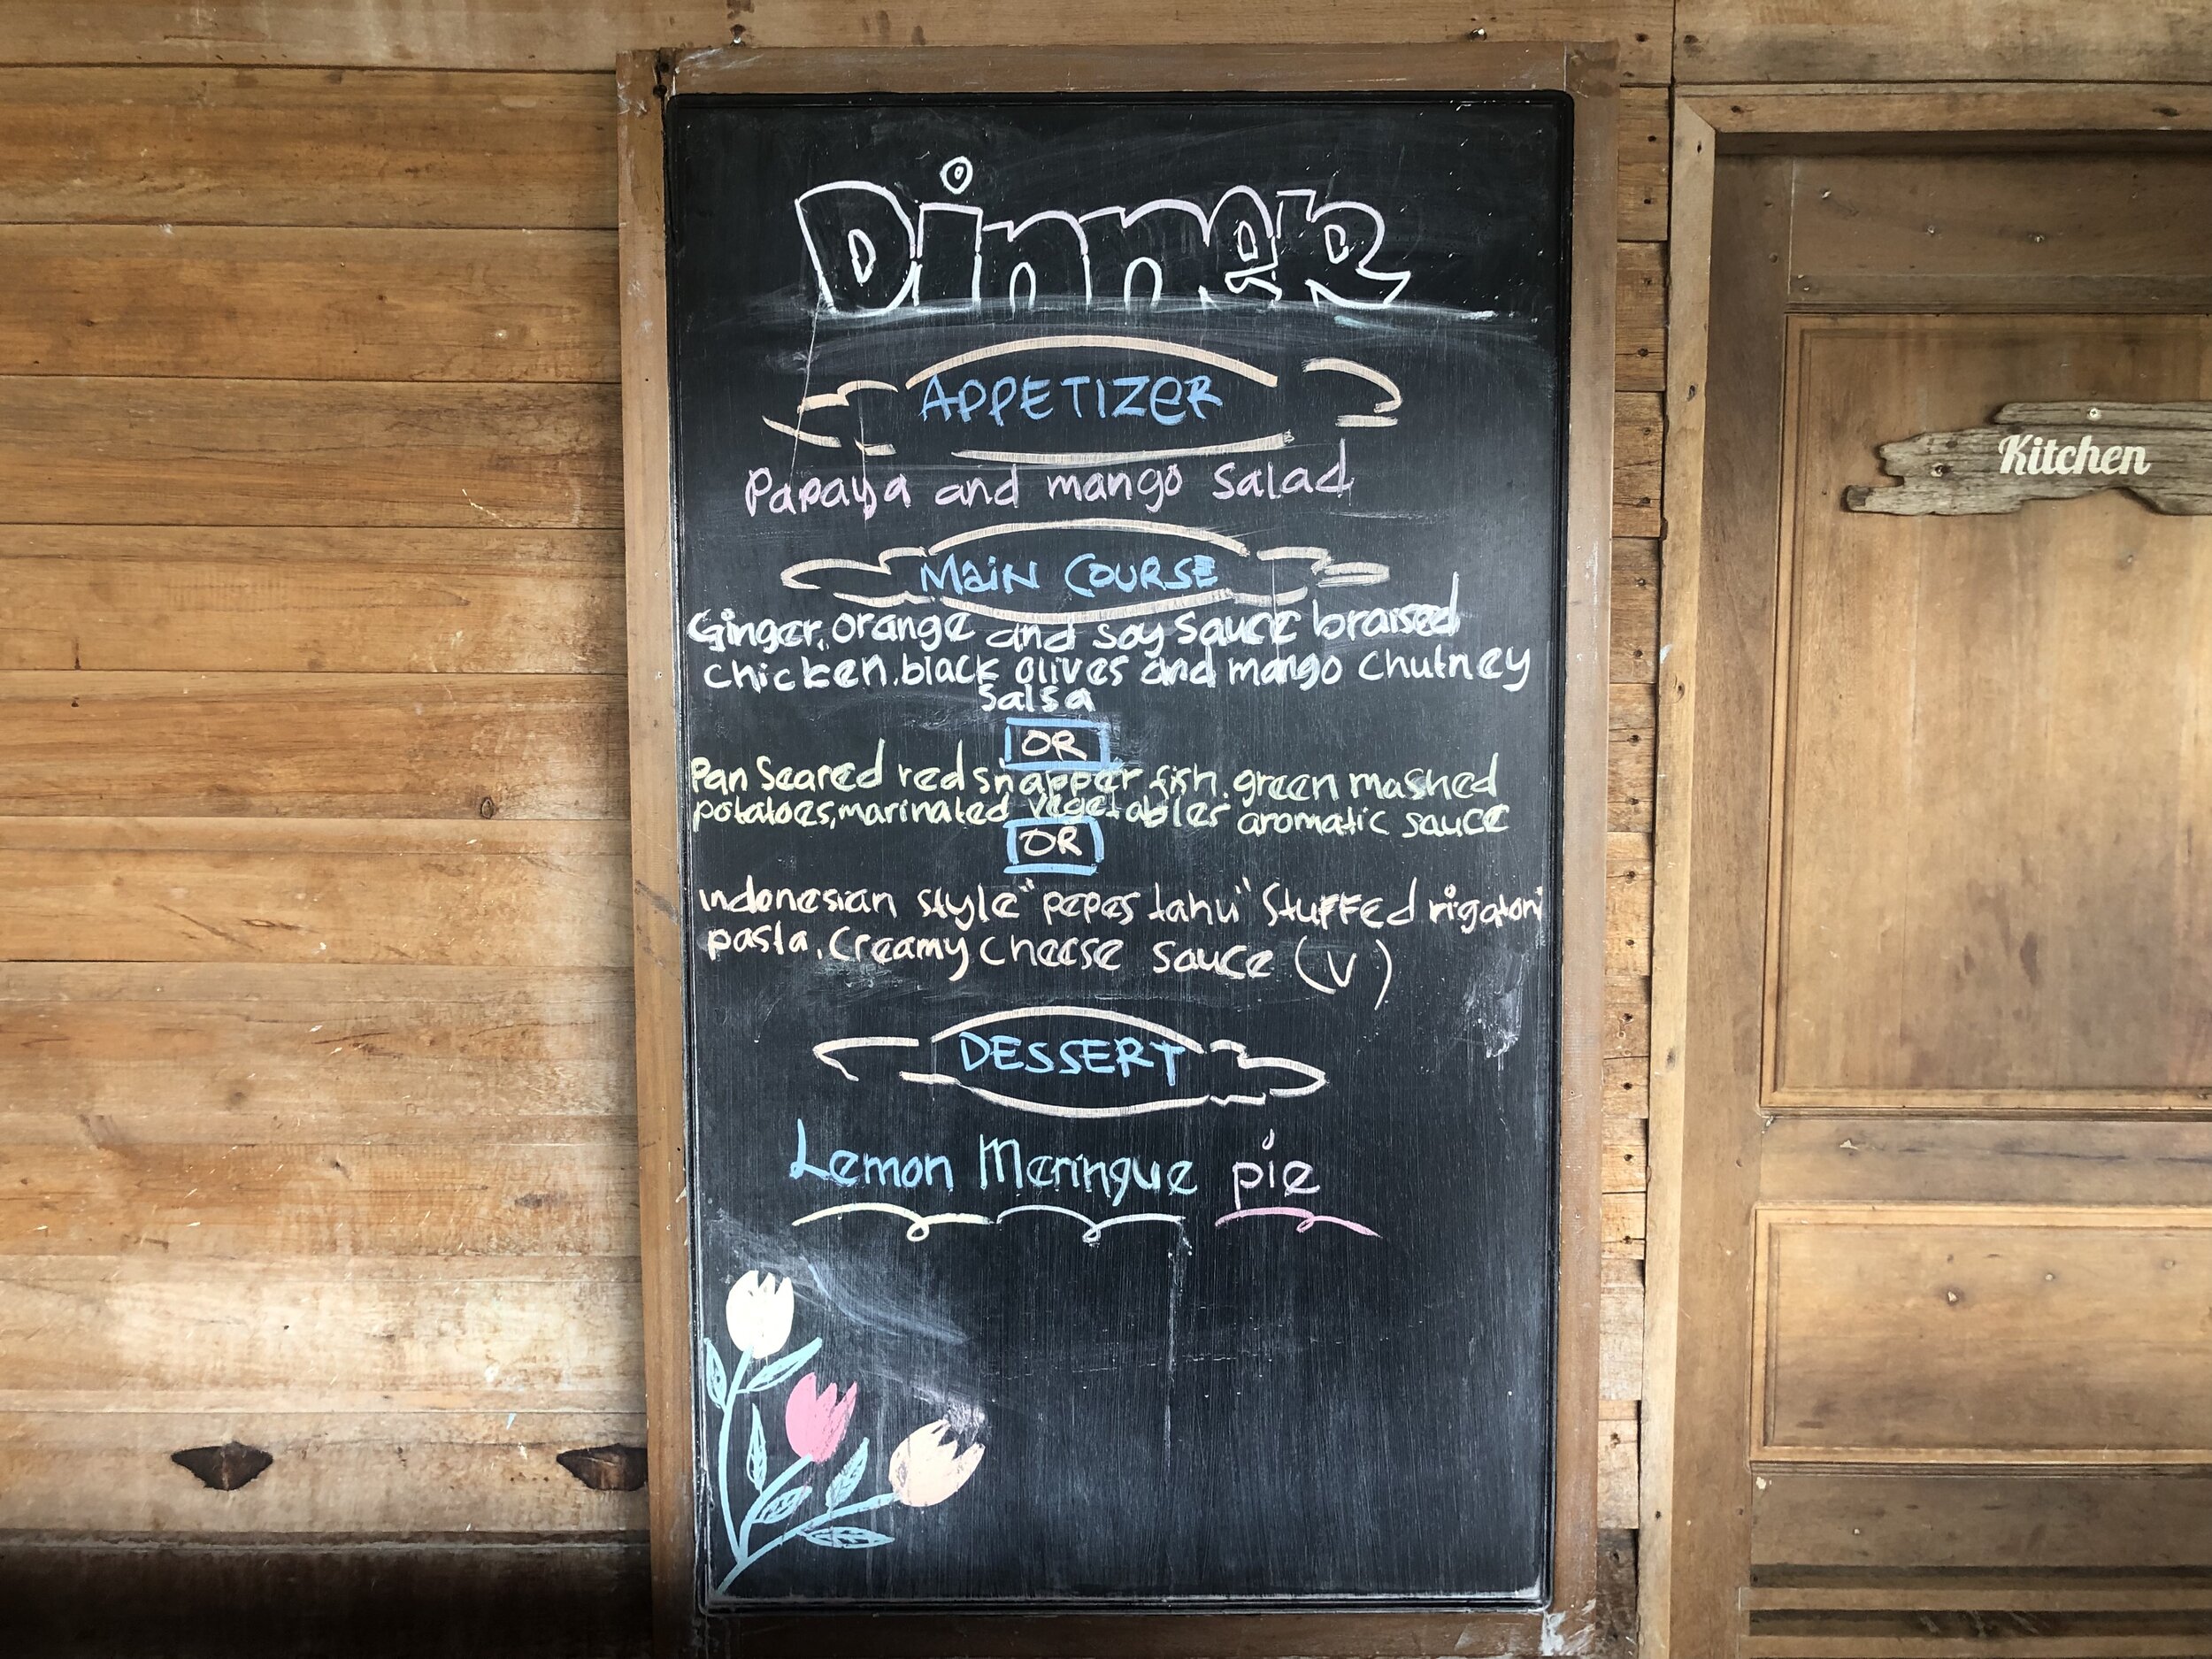 Dinner
APPETIZER
Papaya and mango salad
MaiN COURSE
Ginger, orange and soy sauce braised
chicken, black olives and mango chutney
salsa
OR
Pan Seared red snapper fish, green mashed
potatoes, marinated vegetables aromatic sauce
OR
indonesian style "pepes tahu" Stuffed rigatoni
pasta, Creamy cheese sauce (V)
DESSERT
Lemon Meringue pie
Kitchen